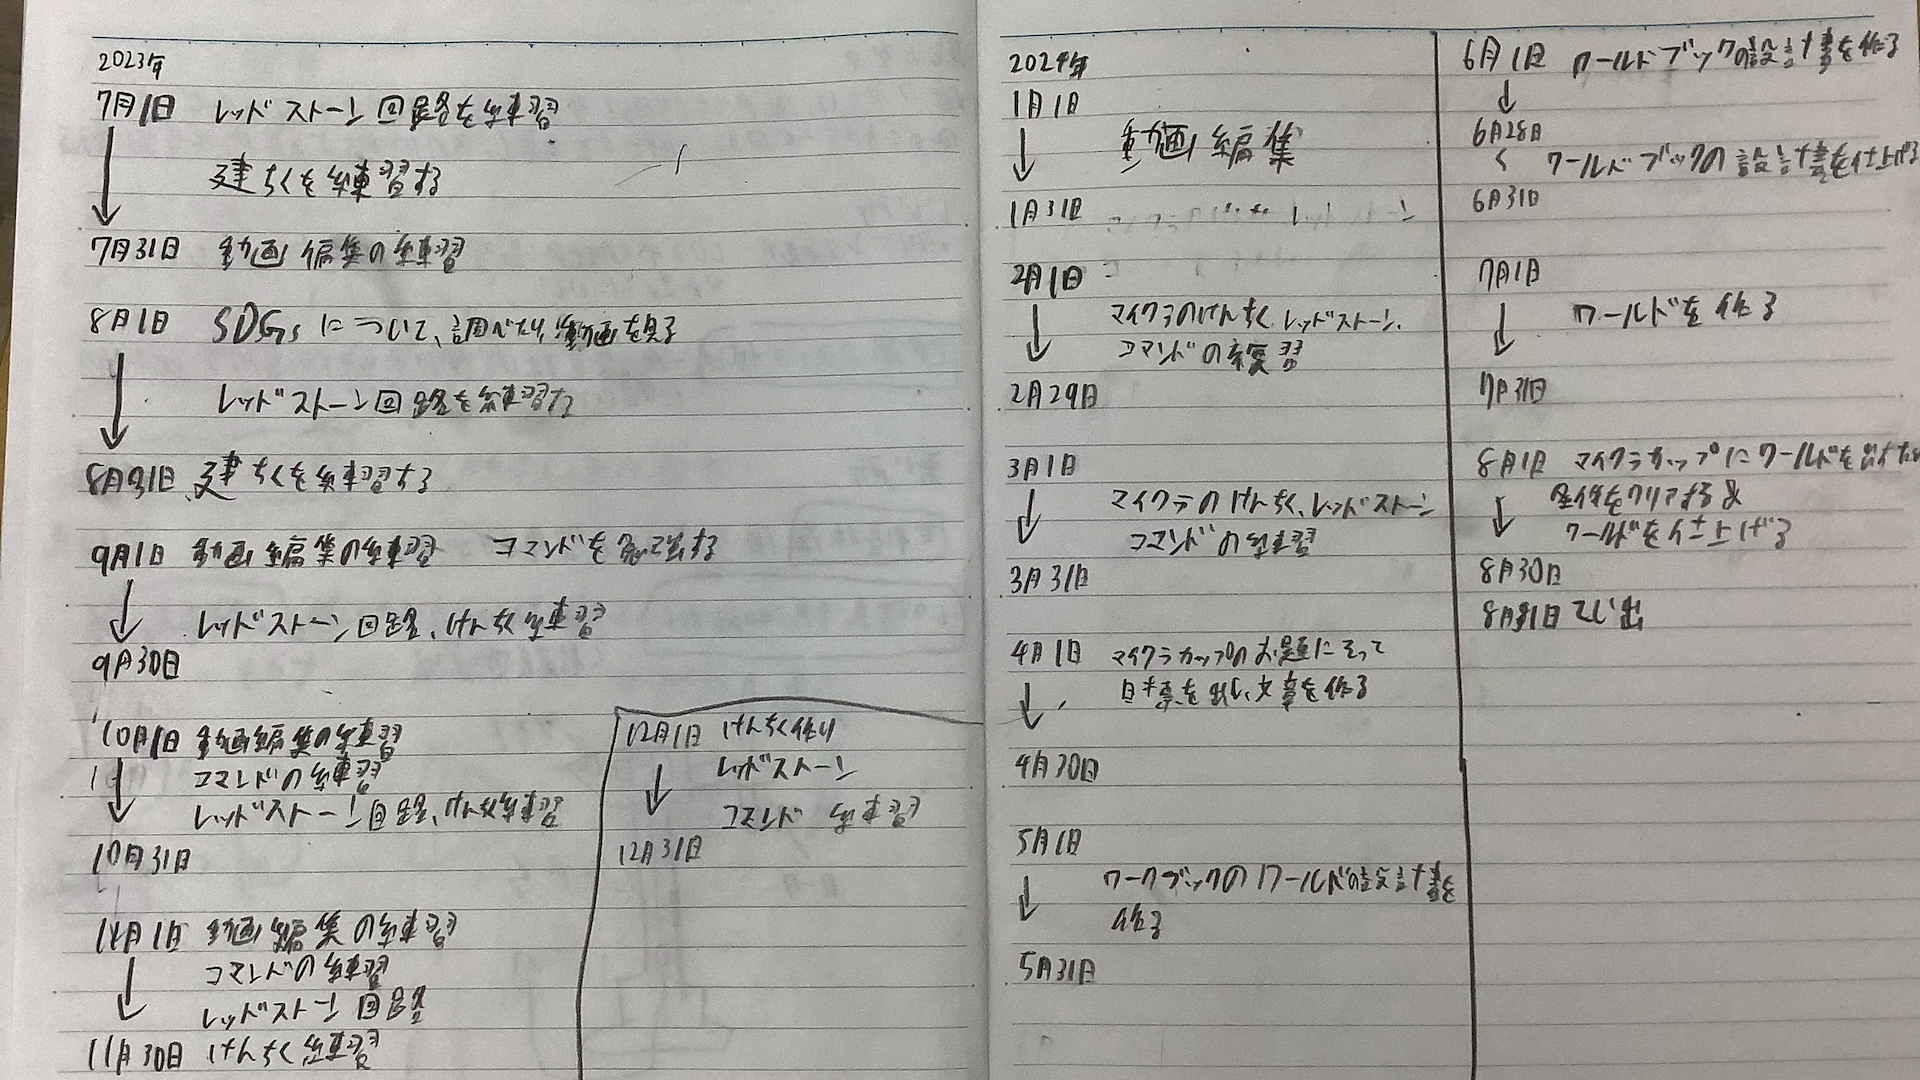 2023年
7月1日 レッドストーン回路を練習
建ちくを練習する
7月31日 動画編集の練習
8月1日 SDGsについて、調べたり、動画を見る
レッドストーン回路を練習する
8月31日 建ちくを練習する
9月1日 動画編集の練習 コマンドを する
レッドストーン回路、けんちく練習
9月30日
10月1日 動画編集の練習
コマンドの練習
レッドストーン回路、けんちく練習
10月31日
11月1日 動画編集の練習
コマンドの練習
レッドストーン回路
11月30日 けんちく練習
12月1日 けんちく作り
レッドストーン
コマンド 練習
12月31日
2024年
1月1日
動画編集
1月31日
2月1日
マイクラのけんちく、レッドストーン、
コマンドの練習
2月29日
3月1日
マイクラのけんちく、レッドストーン
コマンドの練習
3月31日
4月1日 マイクラカップのお題にそって
目標を出し、文章を作る
4月30日
5月1日
ワークブックのワールドの設計書を
作る
5月31日
6月1日 ワールドブックの設計書を作る
6月28日
ワールドブックの設計書を仕上げる
6月31日
7月1日
ワールドを作る
7月31日
8月1日 マイクラカップにワールドを
をクリアする&
ワールドを仕上げる
8月30日
8月31日 てい出